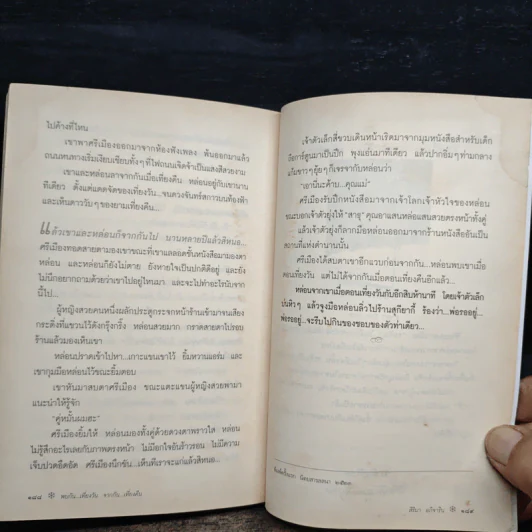 ไปค้างที่ไหน
เขาพาศรีเมืองออกมาจากห้องฟังเพลง พ้นออกมาแล้ว
ถนนหนทางเริ่มเงียบเชียบทั้งๆ ที่ไฟถนนเจิดจ้าเป็นแสงสีสวยงาม
เขาและหล่อนลาจากกันเมื่อเที่ยงคืน หล่อนอยู่กับเขานาน
ทีเดียว ตั้งแต่แดดจัดของเที่ยงวัน...จนดวงจันทร์สกาวบนท้องฟ้า
และเห็นดาววับๆ ของยามเที่ยงคืน...
แล้วเขาและหล่อนก็จากกันไป นานหลายปีแล้วสิหนอ...
ศรีเมืองทอดสายตามองเขาขณะที่เขาแลลอดชั้นหนังสือมามองตา
หล่อน และหล่อนก็ยังไม่ตาย ยังหายใจเป็นปกติดีอยู่ และยัง
ไม่นึกอยากถามด้วยว่าเขาไปอยู่ไหนมา และจะไปทำอะไรกับจาก
นี้ไป...
ผู้หญิงสวยคนหนึ่งผลักประตูกระจกหน้าร้านเข้ามาจนเสียง
กระดิ่งที่แขวนไว้ดังกรุ๊งกริ๊ง หล่อนสวยมาก กราดสายตาไปรอบ
ร้านแล้วมองเห็นเขา
หล่อนปราดเข้าไปหา...เกาะแขนเขาไว้ ยิ้มหวานแฉ่ม และ
เขากุมมือหล่อนไว้ขณะยิ้มตอบ
เขาหันมาสบตาศรีเมือง ขณะแตะแขนผู้หญิงสวยพามา
แนะนำให้รู้จัก
"คู่หมั้นผมฮะ"
ศรีเมืองยิ้มให้ หล่อนมองทั้งคู่ด้วยดวงตาพราวใส หล่อน
ไม่รู้สึกอะไรเลยกับภาพตรงหน้า ไม่มีอกใจอันร้าวรอน ไม่มีความ
เจ็บปวดอึดอัด ศรีเมืองนึกขัน...เห็นทีเราจะแก่แล้วสิหนอ...
๑๘๘ พบกัน...เที่ยงวัน จากกัน...เที่ยงคืน
เจ้าตัวเล็กสีขวบเดินหน้าเริ่ดมาจากมุมหนังสือสำหรับเด็ก
ถือการ์ตูนมาเป็นปึก พุงแอ่นมาทีเดียว แล้วปากอิ่มๆ ท่ามกลาง
แก้มขาวๆ ยุ้ยๆ ก็เจรจากับหล่อนว่า
"เอานี่นะค้าบ...คุณแม่"
ศรีเมืองรับปึกหนังสือมาจากเจ้าโลกเจ้าหัวใจของหล่อน
ขณะบอกเจ้าตัวยุ่งให้ "สาธุ" คุณอาแสนหล่อแสนสวยตรงหน้าทั้งคู่
แล้วเจ้าตัวยุ่งก็ลากมือหล่อนออกมาจากร้านหนังสืออันเป็น
สถานที่แห่งตำนานนั้น
ศรีเมืองได้สบตาเขาอีกแวบก่อนจากกัน...หล่อนพบเขาเมื่อ
ตอนเที่ยงวัน แต่ไม่ได้จากกันเมื่อตอนเที่ยงคืนอีกแล้ว...
หล่อนจากเขาเมื่อตอนเที่ยงวันกับอีกสิบห้านาที โดยเจ้าตัวเล็ก
แล้วจูงมือหล่อนลิ่วไปร้านสุกี้ยากี้ ร้องว่า...พ่อรออยู่...
พ่อรออยู่...จะรีบไปกินของชอบของตัวท่าเดียว...
๑๘๙